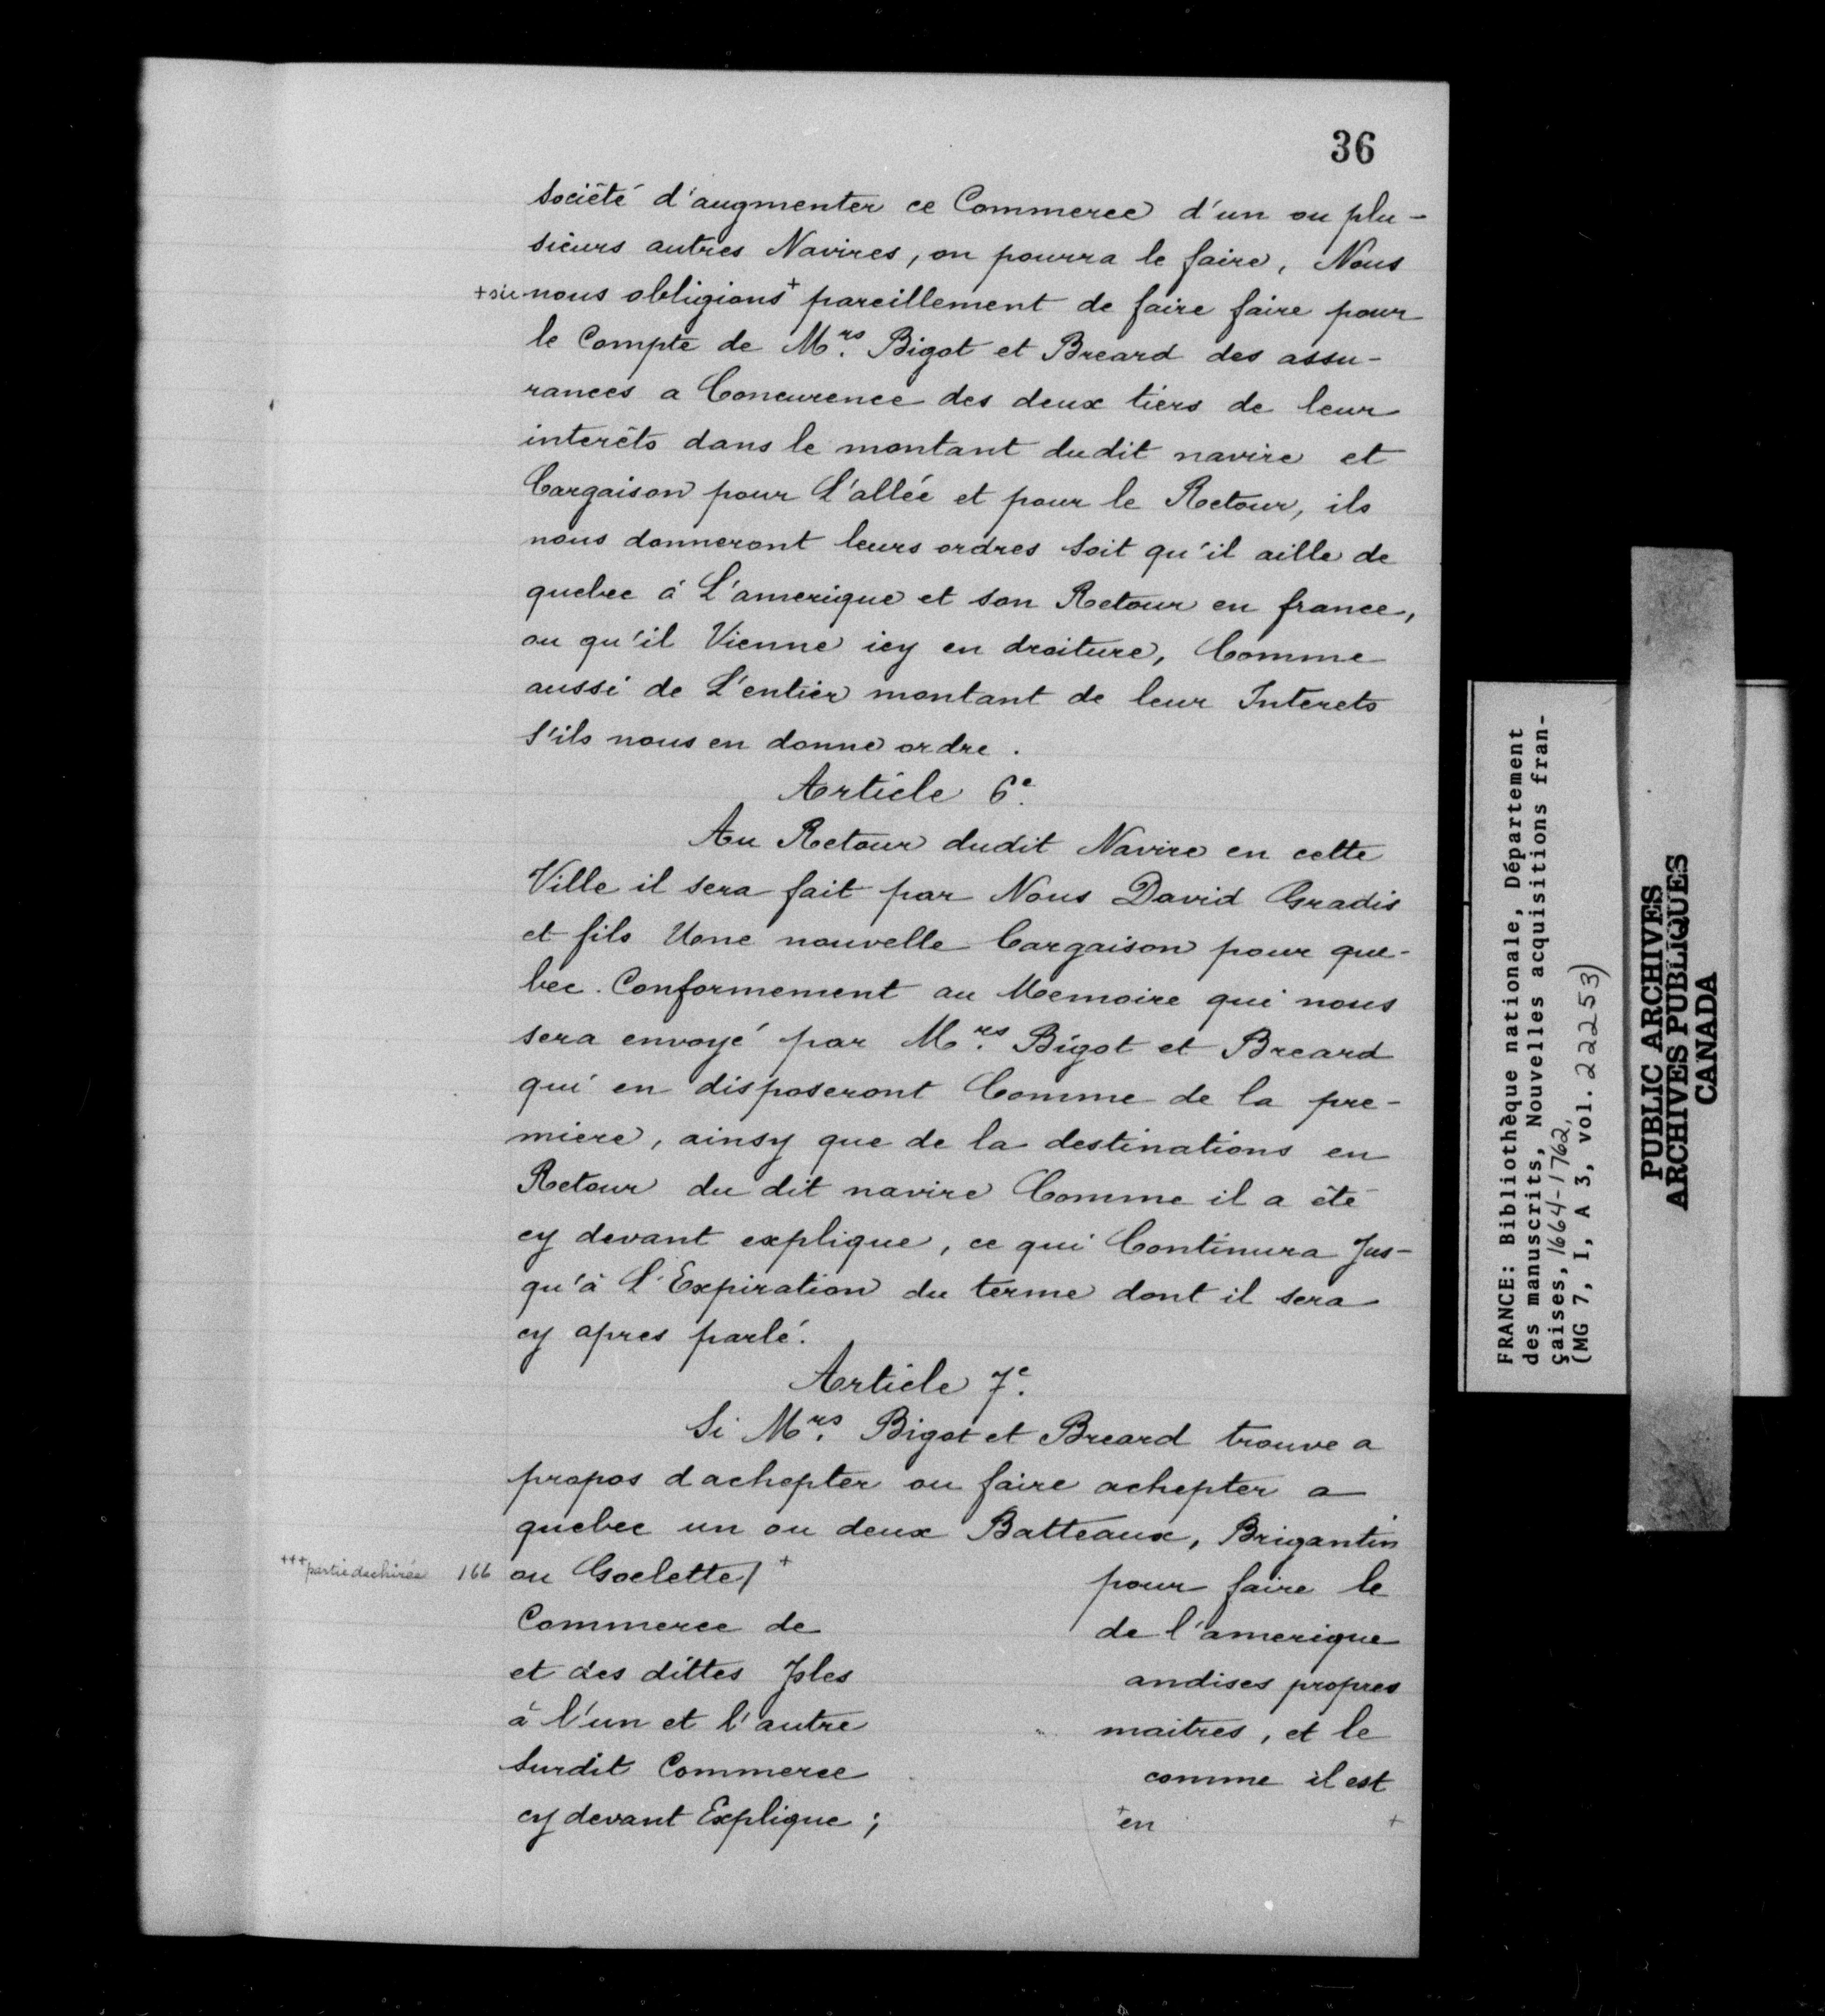 36
société d'augmenter ce Commerce d'un ou plu-
sieurs autres Navires, on pourra le faire, Nous
+sic nous obligions+ pareillement de faire faire pour
le Compte de Mrs. Bigot et Breard des assu-
rances a Concurence des deux tiers de leur
interêts dans le montant dudit navire et
Cargaison pour L'allée et pour le Retour, ils
nous donneront leurs ordres soit qu'il aille de
quebec á L'amerique et son Retour en france,
ou qu'il Vienne icy en droiture, Comme
aussi de L'entier montant de leur Interets
S'ils nous en donne ordre.
Article 6e.
Au Retour dudit Navire en cette
Ville il sera fait par Nous David Gradis
et fils Une nouvelle Cargaison pour que-
bec. Conformement au Memoire qui nous
sera envoyé par Mrs. Bigot et Breard
qui en disposeront Comme de la pre-
miere, ainsy que de la destinations en
Retour du dit navire Comme il a été
cy devant explique, ce qui Continura Jus-
qu'à L'Expiration du terme dont il sera
cy apres parlé.
Article 7e.
Si Mrs. Bigot et Breard trouve a
propos dachepter ou faire achepter a
quebec un ou deux Batteaux, Brigantin
+++partie dechirée 166 ou Goelette/+ pour faire le
Commerce de de l'amerique
et des dittes Isles andises propres
à l'un et l'autre maitres, et le
Surdit Commerce comme il est
cy devant Explique; +en +
FRANCE: Bibliothèque nationale, Département
des manuscrits, Nouvelles acquisitions fran-
çaises, 1664-1762,
(MG 7, I, A 3, vol. 22253)
PUBLIC ARCHIVES
ARCHIVES PUBLIQUES
CANADA